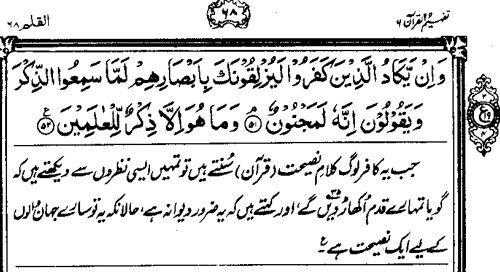 تفہیم القرآن ۶
۶۸
القلم ۶۸
وَاِنْ يَّكَادُ الَّذِيْنَ كَفَرُوْا لَيُزْلِقُوْنَكَ بِاَبْصَارِهِمْ لَمَّا سَمِعُوا الذِّكْرَ
وَيَقُوْلُوْنَ اِنَّهٗ لَمَجْنُوْنٌ ۵۱ وَمَا هُوَ اِلَّا ذِكْرٌ لِّلْعٰلَمِيْنَ ۵۲
جب یہ کافر لوگ کلامِ نصیحت (قرآن) سُنتے ہیں تو تمہیں ایسی نظروں سے دیکھتے ہیں کہ
گویا تمہارے قدم اُکھاڑ دیں گے، اور کہتے ہیں کہ یہ ضرور دیوانہ ہے، حالانکہ یہ تو سارے جہان والوں
کے لیے ایک نصیحت ہے ع